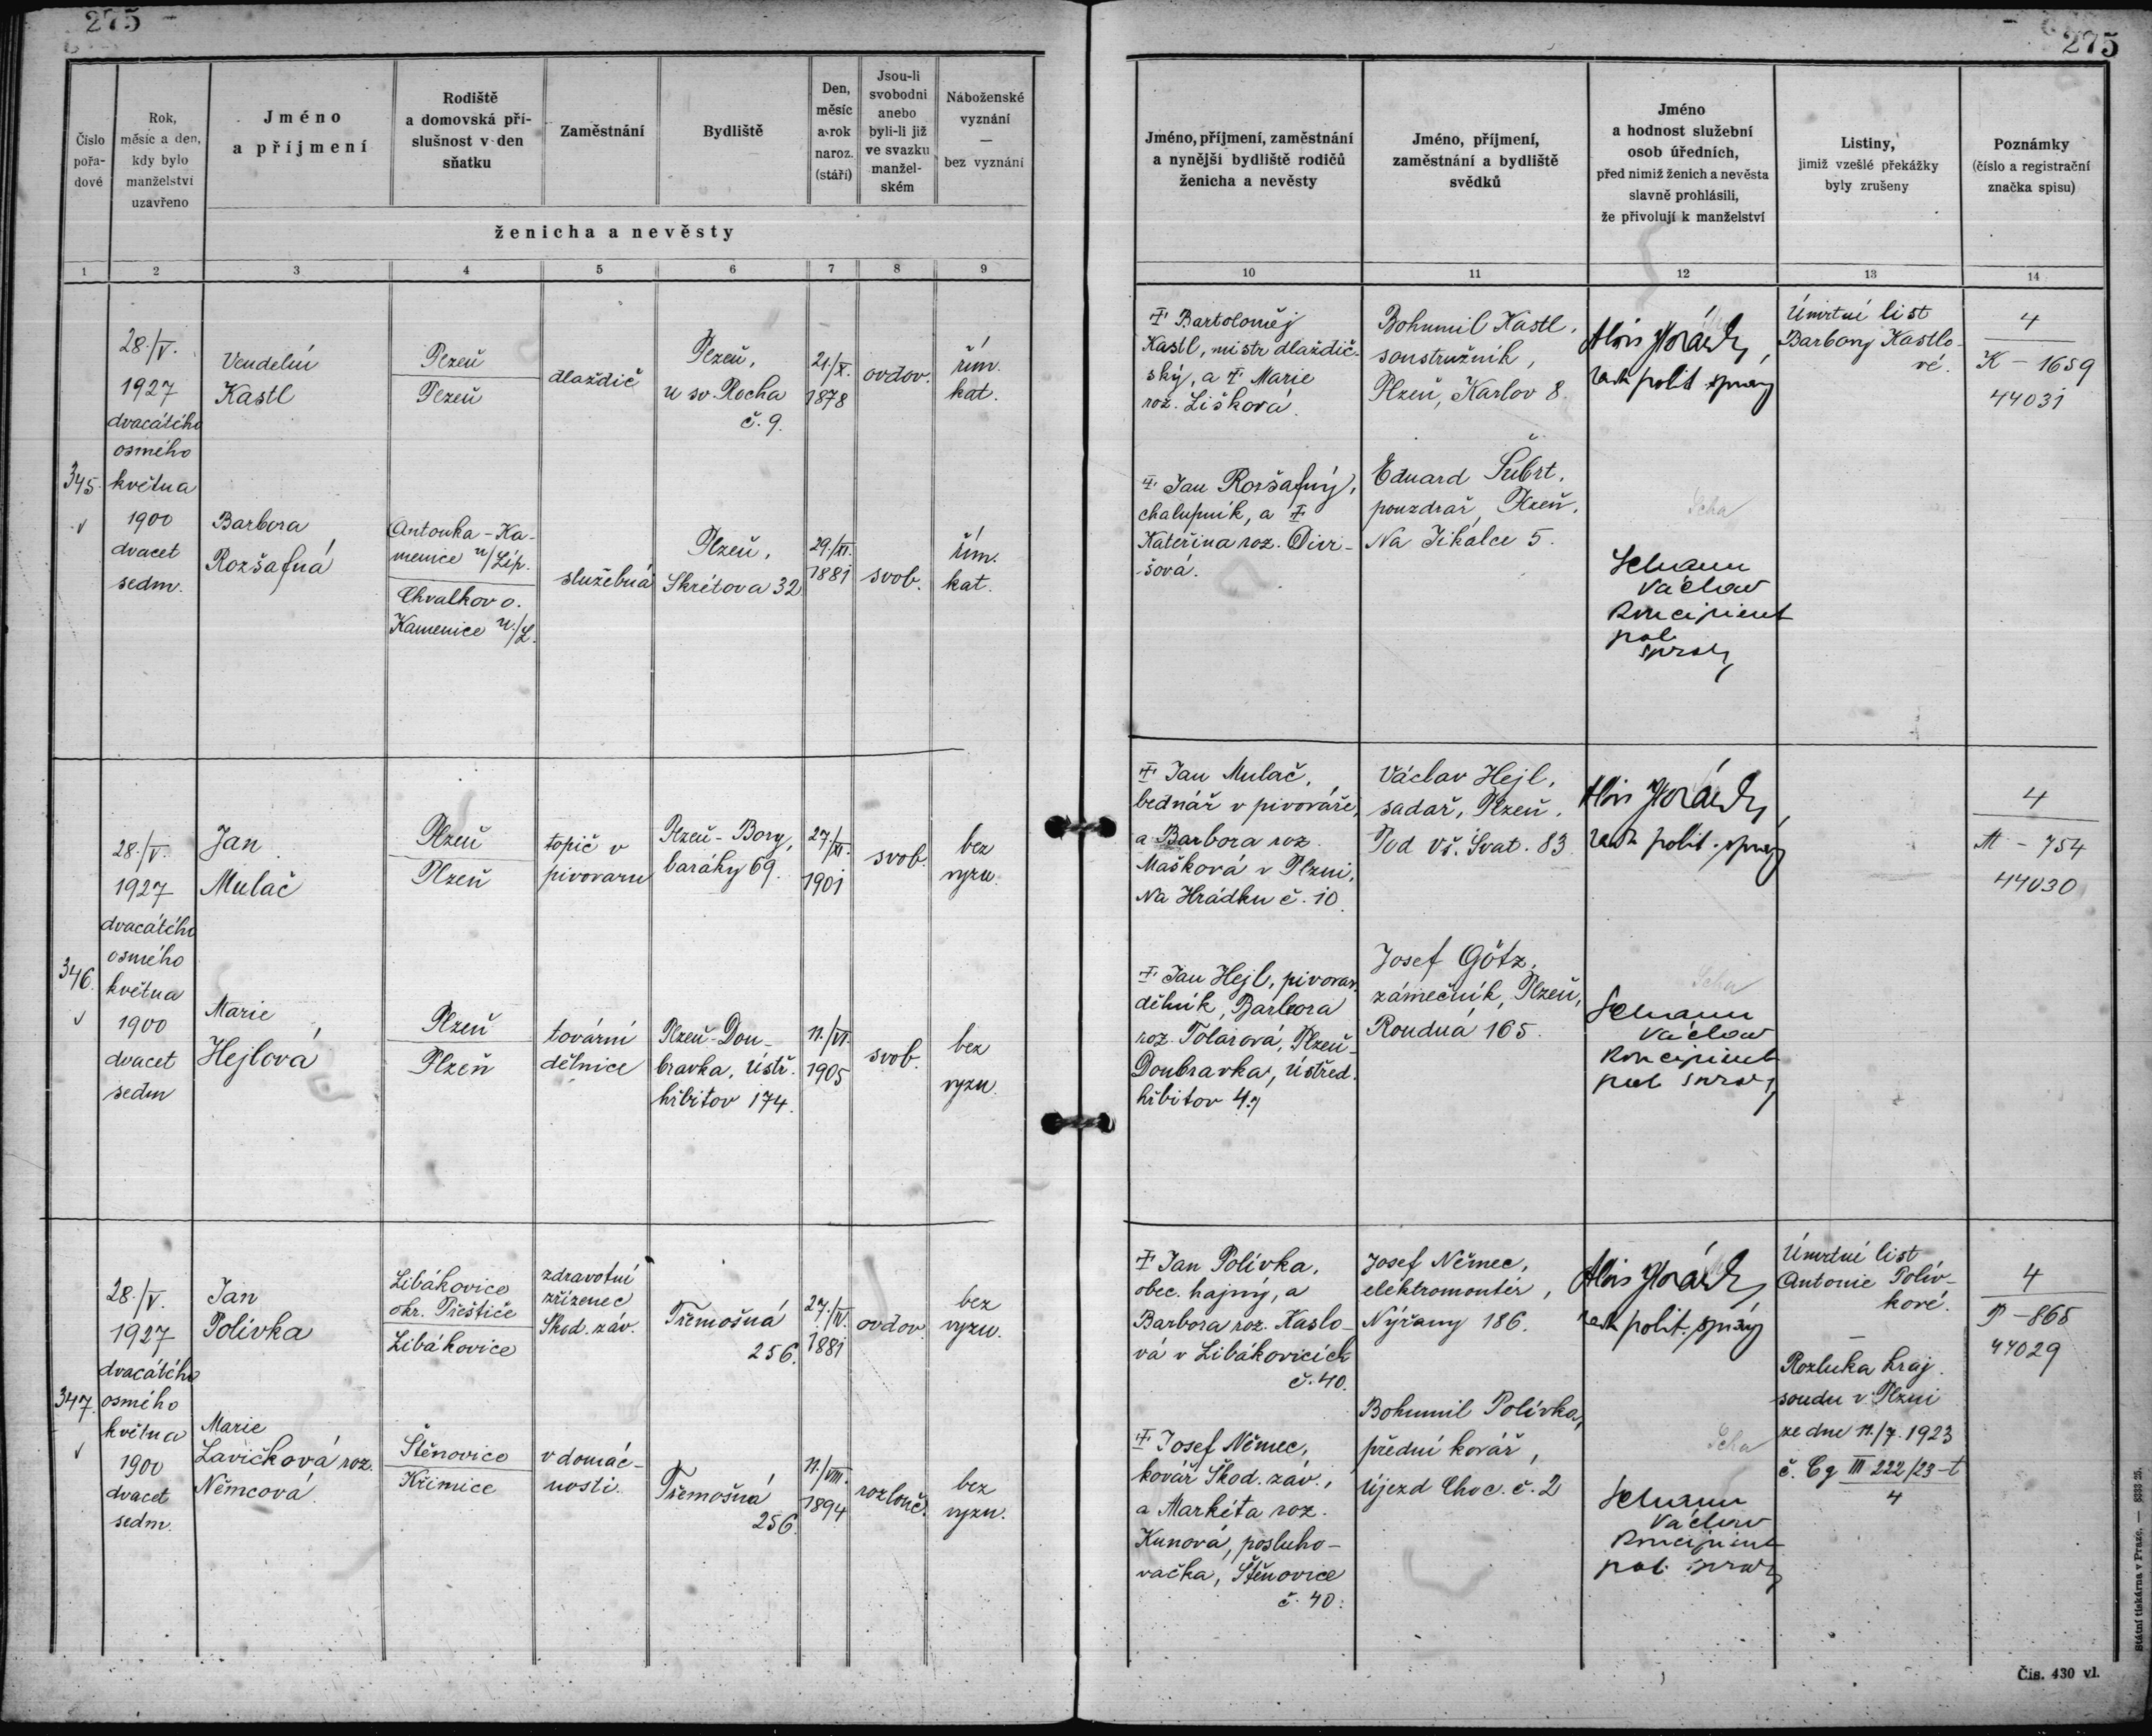 275
275
Číslo pořa- dové
Rok, měsíc a den, kdy bylo manželství uzavřeno
Jméno a příjmení
Rodiště a domovská pří- slušnost v den sňatku
Zaměstnání
Bydliště
Den, měsíc a rok naroz. (stáří)
Jsou-li svobodni anebo byli-li již ve svazku manžel- ském
Náboženské vyznání — bez vyznání
ženicha a nevěsty
Jméno, příjmení, zaměstnání a nynější bydliště rodičů ženicha a nevěsty
Jméno, příjmení, zaměstnání a bydliště svědků
Jméno a hodnost služební osob úředních, před nimiž ženich a nevěsta slavně prohlásili, že přivolují k manželství
Listiny, jimiž vzešlé překážky byly zrušeny
Poznámky (číslo a registrační značka spisu)
1 2 3 4 5 6 7 8 9
10 11 12 13 14
345
28./V.
1927
dvacátého
osmého
května
1900
dvacet
sedm.
Vendelín
Kastl
Plzeň
Plzeň
dlaždič
Plzeň,
u sv. Rocha
č. 9.
21./X.
1878
ovdov.
řím.
kat.
Barbora
Rozšafná
Antonka-Ka-
menice n/Lip.
Chvalkov o.
Kamenice n./L.
služebná
Plzeň,
Skrétova 32
29./XI.
1881
svob.
řím.
kat.
Bartoloměj
Kastl, mistr dlaždič-
ský, a Marie
roz. Lišková.
Jan Rozšafný,
chalupník, a
Kateřina roz. Divi-
šová.
Bohumil Kastl,
soustružník,
Plzeň, Karlov 8.
Eduard Šubrt,
pouzdrař, Plzeň,
Na Jikálce 5.
Alois
rada polit. správy
Scha
Václav
koncipient
pol.
správy
Úmrtní list
Barbory Kastlo-
vé.
4
K - 1659
44031
346.
28./V.
1927
dvacátého
osmého
května
1900
dvacet
sedm
Jan
Mulač
Plzeň
Plzeň
topič v
pivovaru
Plzeň-Bory,
baráky 69.
27./XI.
1901
svob.
bez
vyzn.
Marie
Hejlová
Plzeň
Plzeň
tovární
dělnice
Plzeň-Dou-
bravka, Ústř.
hřbitov 174.
11./VI.
1905
svob.
bez
vyzn.
Jan Mulač,
bednář v pivováře,
a Barbora roz.
Mašková v Plzni,
Na Hrádku č. 10.
Jan Hejl, pivovar.
dělník, Barbora
roz. Tolarová, Plzeň-
Doubravka, ústřed.
hřbitov
Václav Hejl,
sadař, Plzeň,
Pod Vš. Svat. 83
Josef Götz,
zámečník, Plzeň,
Roudná 165.
Alois
rada polit. správy
Scha
Václav
koncipient
pol. správy
4
M - 754
44030
347.
28./V.
1927
dvacátého
osmého
května
1900
dvacet
sedm.
Jan
Polívka
Libákovice
okr. Přeštice
Libákovice
zdravotní
zřízenec
Škod. záv.
Třemošná
256.
27./IV.
1881
ovdov.
bez
vyzn.
Marie
Lavičková roz.
Němcová.
Štěnovice
Křimice
v domác-
nosti.
Třemošná
256.
11./VIII.
1894
rozlouč.
bez
vyzn.
Jan Polívka,
obec. hajný, a
Barbora roz. Kaslo-
vá v Libákovicích
č. 40.
Josef Němec,
kovář Škod. záv.,
a Markéta roz.
Kunová, posluho-
vačka, Štěnovice
č. 40.
Josef Němec,
elektromontér,
Nýřany 186.
Bohumil Polívka,
přední kovář,
Újezd Choc. č. 2
Alois
rada polit. správy
Scha
Václav
koncipient
pol. správy
Úmrtní list
Antonie Polív-
kové.
—
Rozluka kraj.
soudu v Plzni
ze dne 11./7. 1923
č. Cg III 222/23-t
4
4
P - 865
44029
Státní tiskárna v Praze. — 8333 25.
Čís. 430 vl.